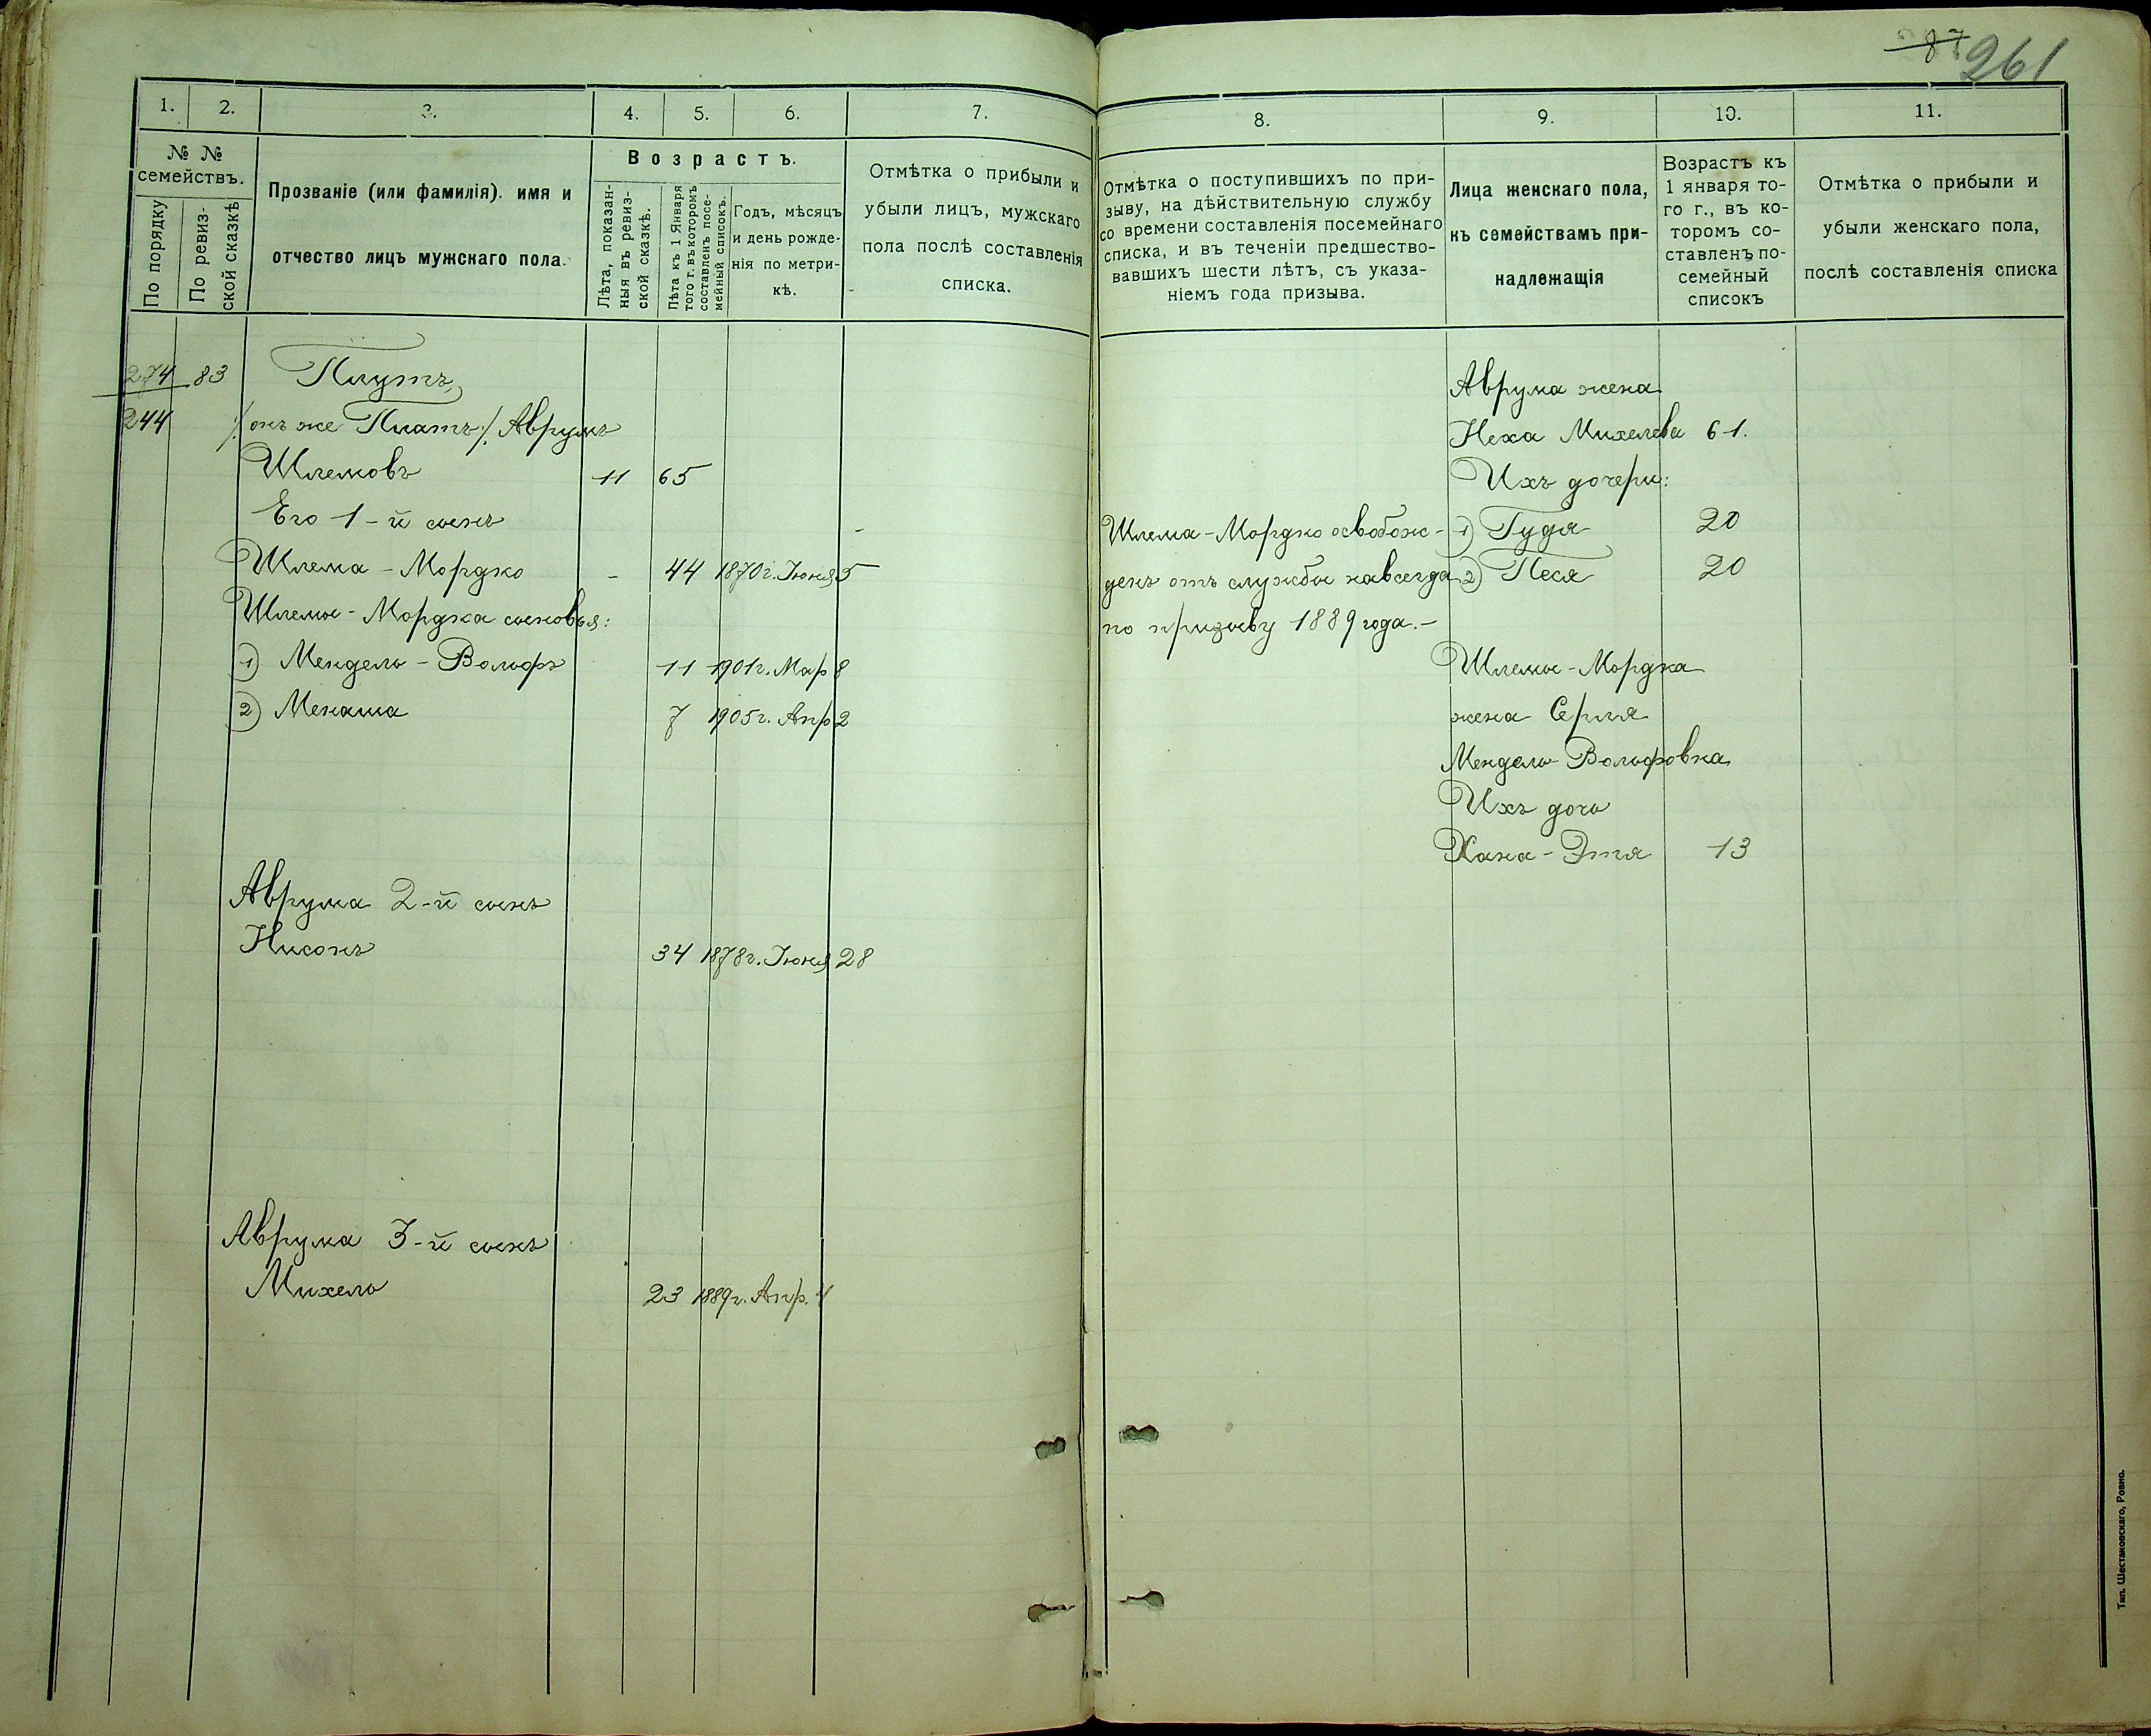 87 261
1. 2. 3. 4. 5. 6. 7.
№ № семействъ.
По порядку
По ревизской сказкѣ
Прозваніе (или фамилія). имя и
отчество лицъ мужскаго пола.
Возрастъ.
Лѣта, показан-
ныя въ ревиз-
ской сказкѣ.
Лѣта къ 1 Января
того г. въ которомъ
составленъ посе-
мейный списокъ.
Годъ, мѣсяцъ
и день рожде-
нія по метри-
кѣ.
Отмѣтка о прибыли и
убыли лицъ, мужскаго
пола послѣ составленія
списка.
274 83 Плутъ,
244 /. онъ же Платъ ./. Аврумъ
Шлемовъ 11 65
Его 1-й сынъ
Шлема-Мордко - 44 1870 г. Іюня 5
Шлемы-Мордка сыновья:
1) Мендель-Вольфъ 11 1901 г. Мар 8
2) Менаша 7 1905 г. Апр 2
Аврума 2-й сынъ
Нисонъ 34 1878 г. Іюня 28
Аврума 3-й сынъ
Михель 23 1889 г. Апр. 4
8. 9. 10. 11.
Отмѣтка о поступившихъ по при-
зыву, на дѣйствительную службу
со времени составленія посемейнаго
списка, и въ теченіи предшество-
вавшихъ шести лѣтъ, съ указа-
ніемъ года призыва.
Лица женскаго пола,
къ семействамъ при-
надлежащія
Возрастъ къ
1 января то-
го г., въ ко-
торомъ со-
ставленъ по-
семейный
списокъ
Отмѣтка о прибыли и
убыли женскаго пола,
послѣ составленія списка
Шлема-Мордко освобож-
денъ отъ службы навсегда
по призыву 1889 года.-
Аврума жена
Неха Михелева 61.
Ихъ дочери:
1) Гудя 20
2) Песя 20
Шлемы-Мордка
жена Серля
Мендель-Вольфовна
Ихъ дочь
Хана-Этя 13
Тип. Шестаковскаго, Ровно.